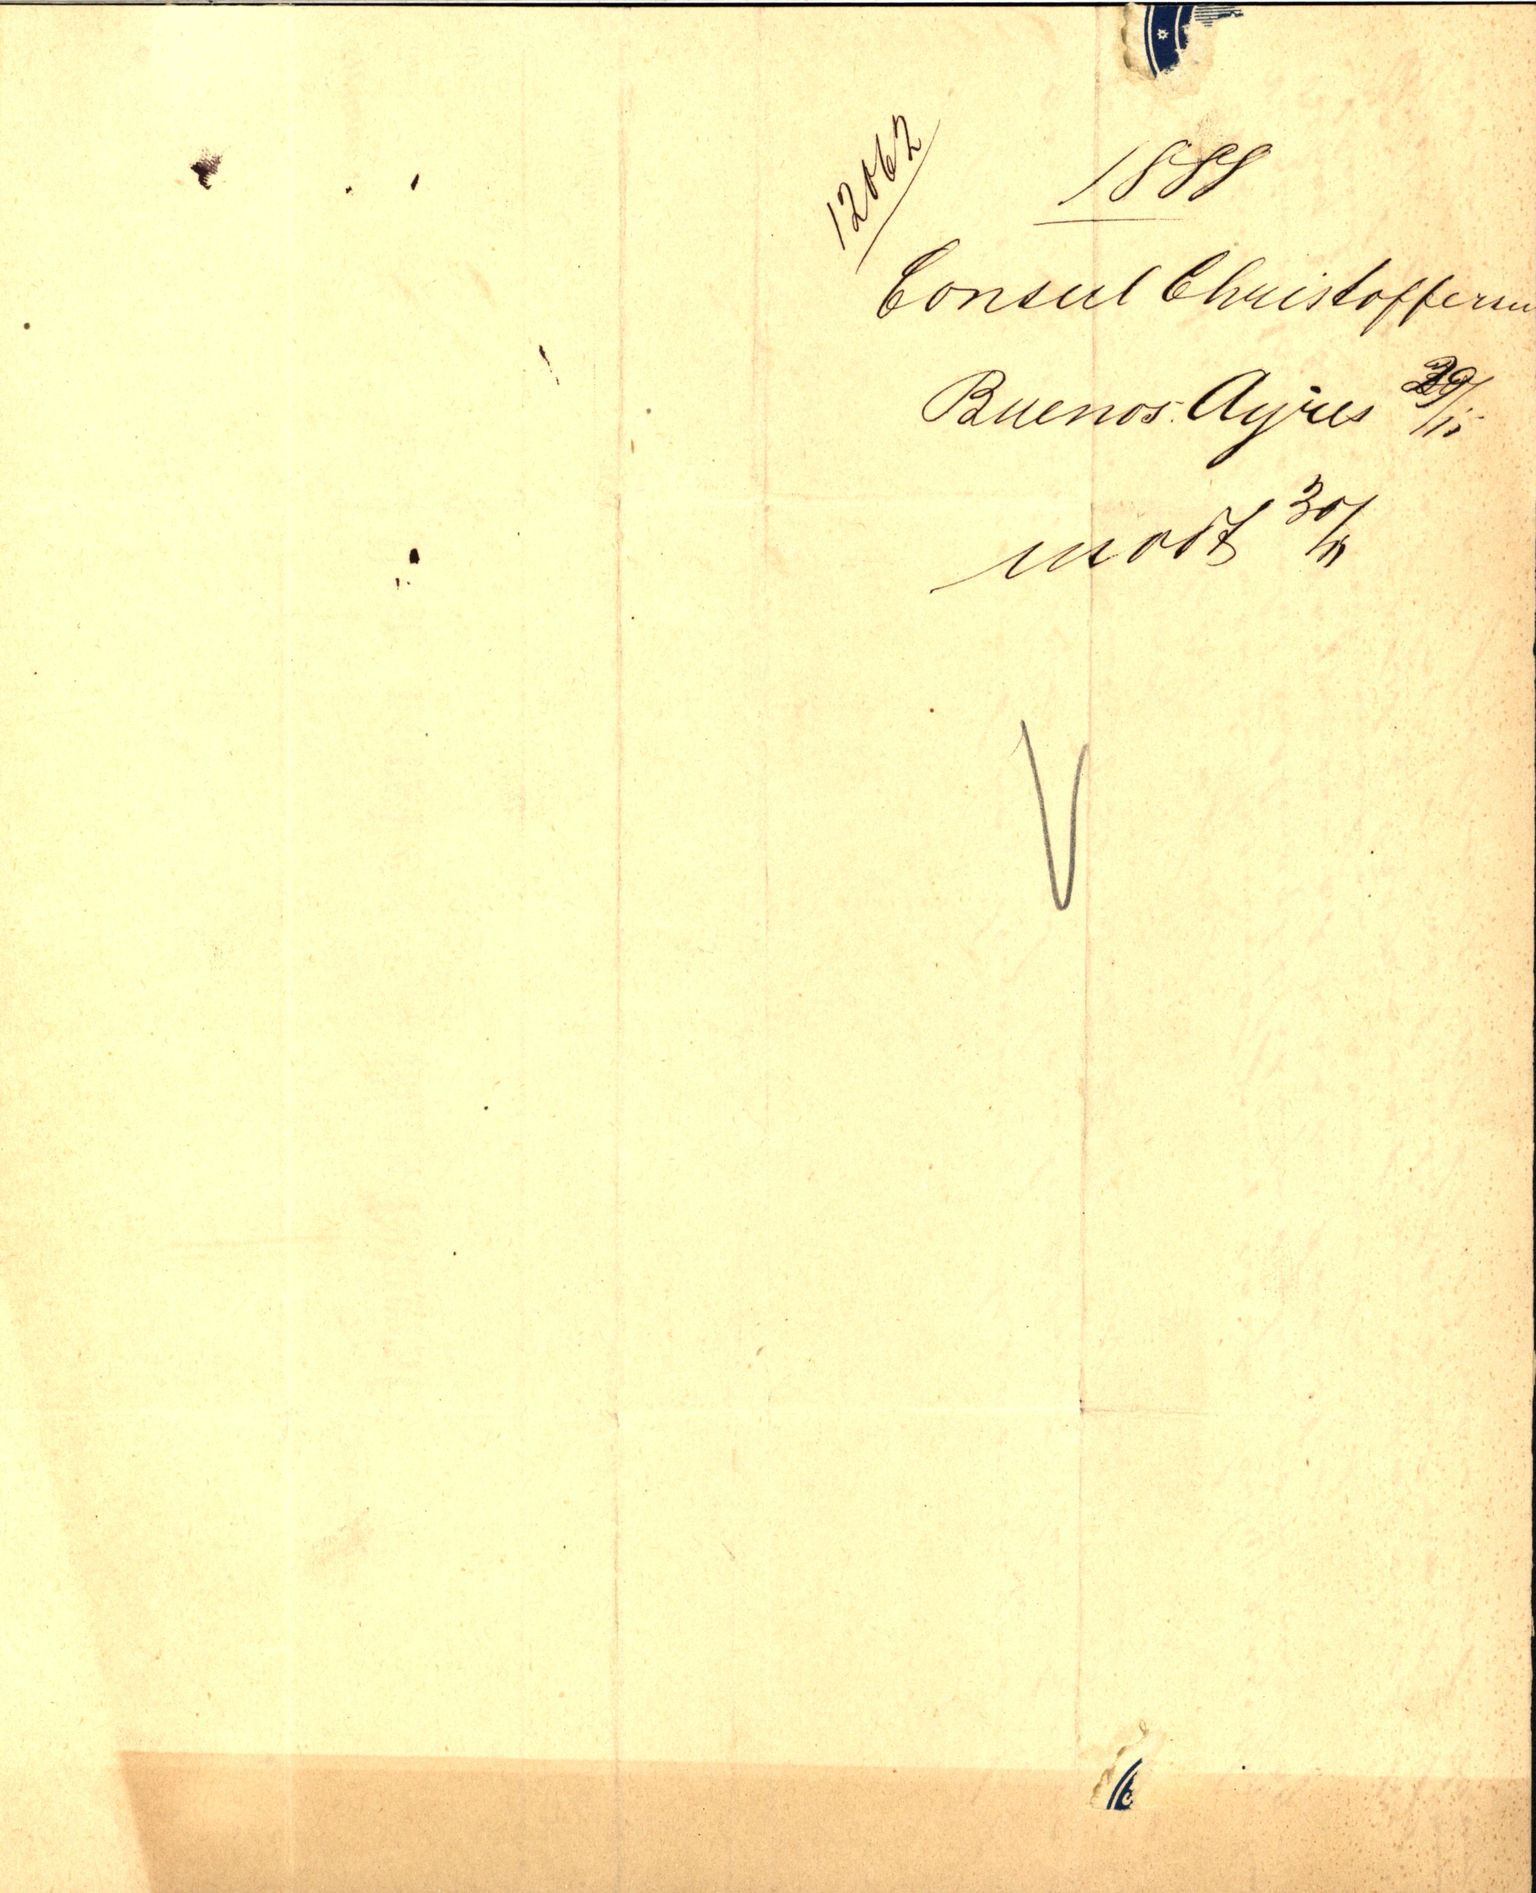 12062
1888
Consul Christoffersen
Buenos. Ayres /11
modt 30/11